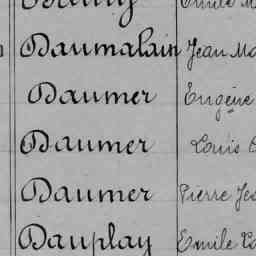 Daumalain Jean
Daumer Eugène
Daumer Louis
Daumer Pierre
Dauplay Emile